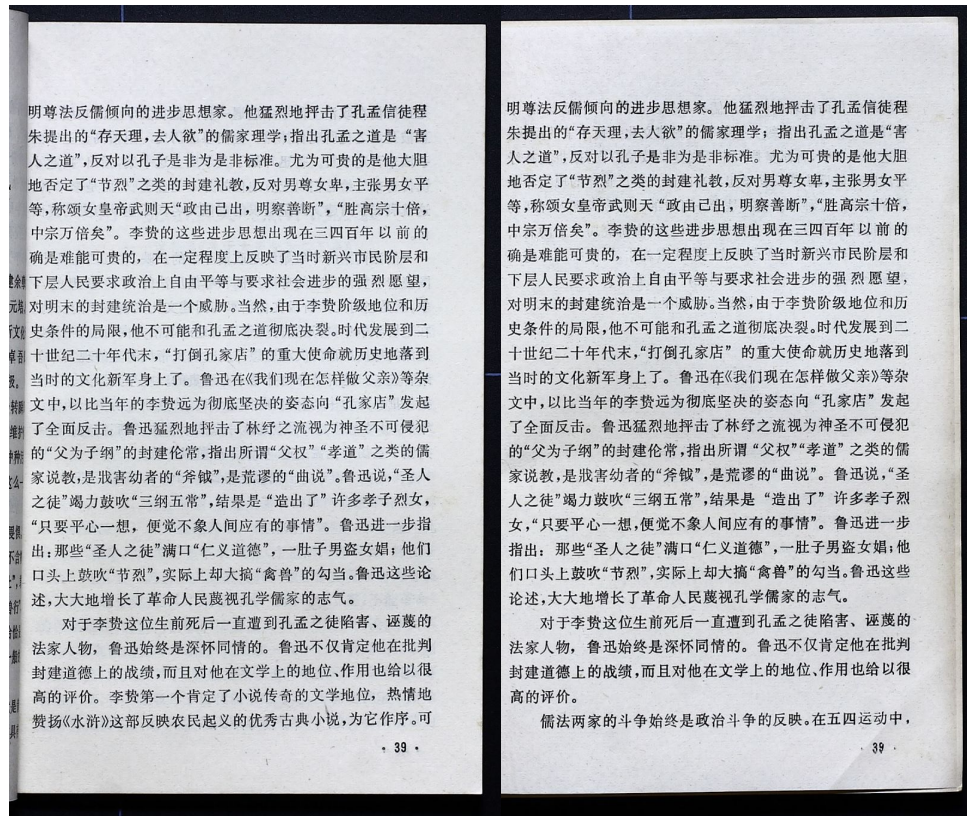 明尊法反儒倾向的进步思想家。他猛烈地抨击了孔孟信徒程
朱提出的“存天理，去人欲”的儒家理学；指出孔孟之道是“害
人之道”，反对以孔子是非为是非标准。尤为可贵的是他大胆
地否定了“节烈”之类的封建礼教，反对男尊女卑，主张男女平
等，称颂女皇帝武则天“政由己出，明察善断”，“胜高宗十倍，
中宗万倍矣”。李贽的这些进步思想出现在三四百年以前的
确是难能可贵的，在一定程度上反映了当时新兴市民阶层和
下层人民要求政治上自由平等与要求社会进步的强烈愿望，
对明末的封建统治是一个威胁。当然，由于李贽阶级地位和历
史条件的局限，他不可能和孔孟之道彻底决裂。时代发展到二
十世纪二十年代末，“打倒孔家店”的重大使命就历史地落到
当时的文化新军身上了。鲁迅在《我们现在怎样做父亲》等杂
文中，以比当年的李贽远为彻底坚决的姿态向“孔家店”发起
了全面反击。鲁迅猛烈地抨击了林纾之流视为神圣不可侵犯
的“父为子纲”的封建伦常，指出所谓“父权”“孝道”之类的儒
家说教，是戕害幼者的“斧钺”，是荒谬的“曲说”。鲁迅说，“圣人
之徒”竭力鼓吹“三纲五常”，结果是“造出了”许多孝子烈女，
“只要平心一想，便觉不象人间应有的事情”。鲁迅进一步指
出：那些“圣人之徒”满口“仁义道德”，一肚子男盗女娼；他们
口头上鼓吹“节烈”，实际上却大搞“禽兽”的勾当。鲁迅这些论
述，大大地增长了革命人民蔑视孔学儒家的志气。
对于李贽这位生前死后一直遭到孔孟之徒陷害、诬蔑的
法家人物，鲁迅始终是深怀同情的。鲁迅不仅肯定他在批判
封建道德上的战绩，而且对他在文学上的地位、作用也给以很
高的评价。李贽第一个肯定了小说传奇的文学地位，热情地
赞扬《水浒》这部反映农民起义的优秀古典小说，为它作序。可
·39·
明尊法反儒倾向的进步思想家。他猛烈地抨击了孔孟信徒程
朱提出的“存天理，去人欲”的儒家理学；指出孔孟之道是“害
人之道”，反对以孔子是非为是非标准。尤为可贵的是他大胆
地否定了“节烈”之类的封建礼教，反对男尊女卑，主张男女平
等，称颂女皇帝武则天“政由己出，明察善断”，“胜高宗十倍，
中宗万倍矣”。李贽的这些进步思想出现在三四百年以前的
确是难能可贵的，在一定程度上反映了当时新兴市民阶层和
下层人民要求政治上自由平等与要求社会进步的强烈愿望，
对明末的封建统治是一个威胁。当然，由于李贽阶级地位和历
史条件的局限，他不可能和孔孟之道彻底决裂。时代发展到二
十世纪二十年代末，“打倒孔家店”的重大使命就历史地落到
当时的文化新军身上了。鲁迅在《我们现在怎样做父亲》等杂
文中，以比当年的李贽远为彻底坚决的姿态向“孔家店”发起
了全面反击。鲁迅猛烈地抨击了林纾之流视为神圣不可侵犯
的“父为子纲”的封建伦常，指出所谓“父权”“孝道”之类的儒
家说教，是戕害幼者的“斧钺”，是荒谬的“曲说”。鲁迅说，“圣
人之徒”竭力鼓吹“三纲五常”，结果是“造出了”许多孝子烈
女，“只要平心一想，便觉不象人间应有的事情”。鲁迅进一步
指出：那些“圣人之徒”满口“仁义道德”，一肚子男盗女娼；他
们口头上鼓吹“节烈”，实际上却大搞“禽兽”的勾当。鲁迅这些
论述，大大地增长了革命人民蔑视孔学儒家的志气。
对于李贽这位生前死后一直遭到孔孟之徒陷害、诬蔑的
法家人物，鲁迅始终是深怀同情的。鲁迅不仅肯定他在批判
封建道德上的战绩，而且对他在文学上的地位、作用也给以很
高的评价。
儒法两家的斗争始终是政治斗争的反映。在五四运动中，
·39·